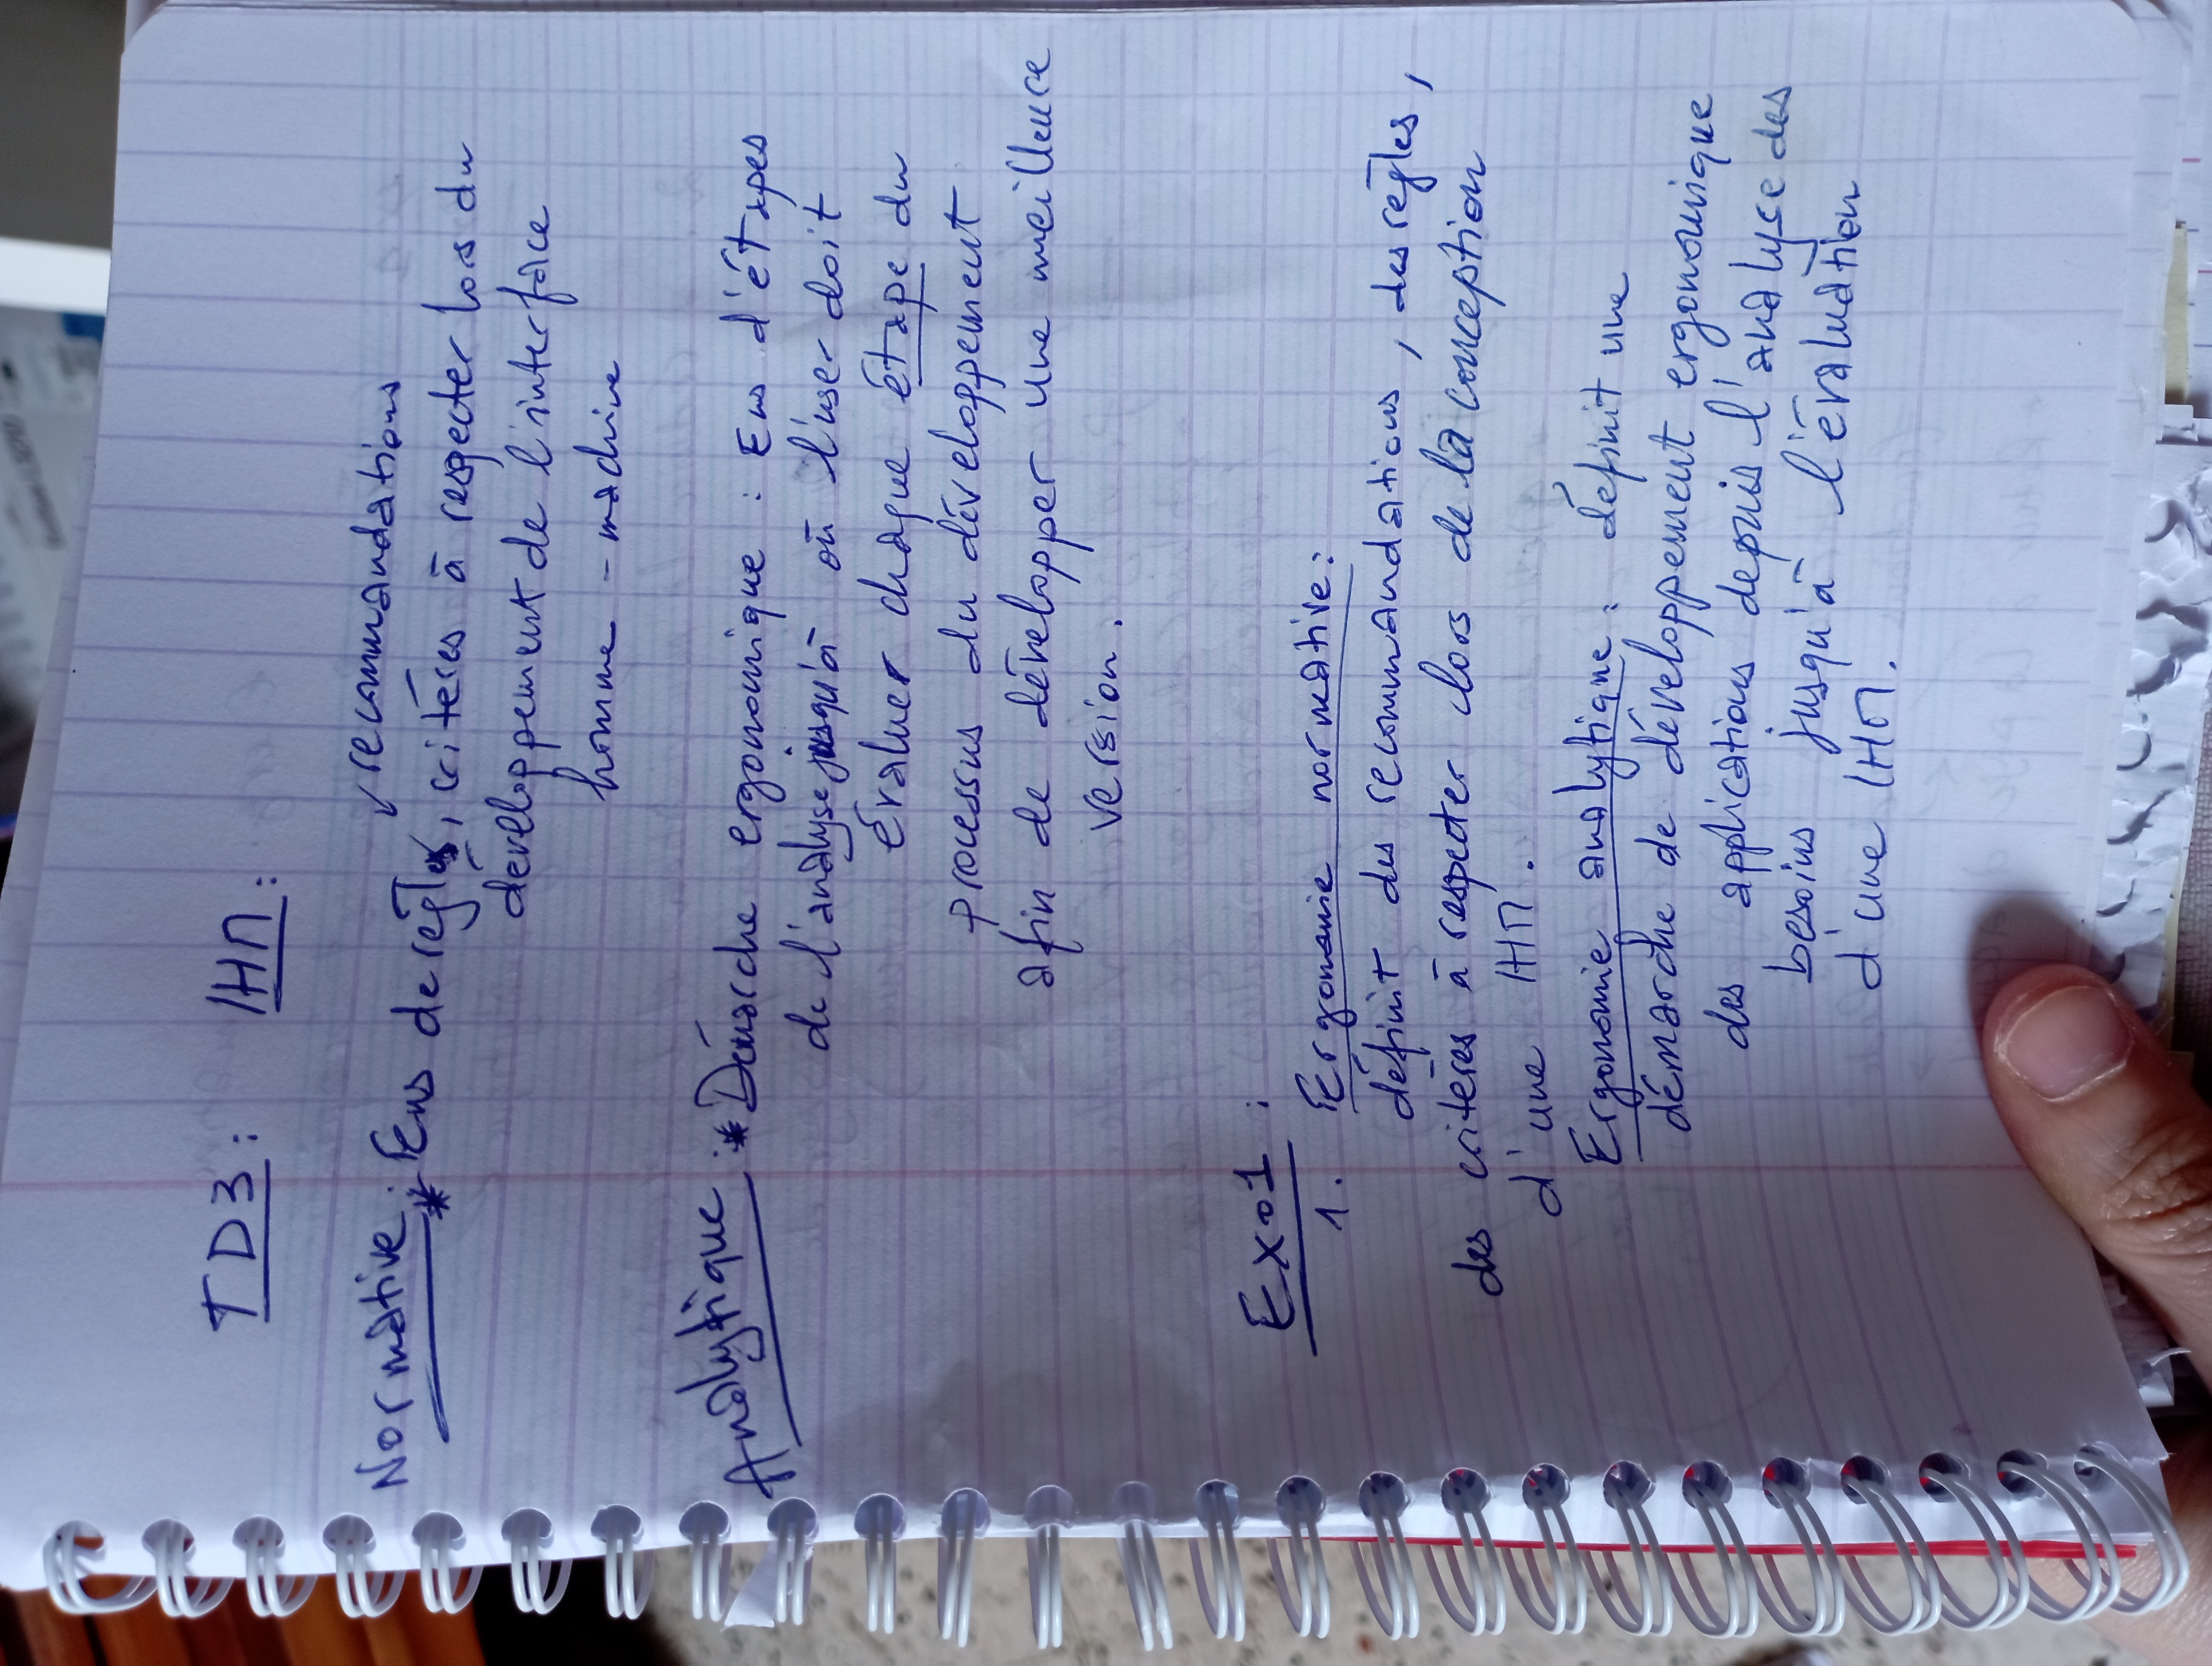 TD3 : IHM :
recommandations
Normative : * Ens de règles, critères à respecter lors du
développement de l'interface
homme - machine
Analytique : * Démarche ergonomique : Ens d'étapes
de l'analyse jusqu'à où l'user doit
évaluer chaque étape du
processus du développement
afin de développer une meilleure
version.
Exo1 :
1. Ergonomie normative :
définit des recommandations, des règles,
des critères à respecter lors de la conception
d'une IHM.
Ergonomie analytique : définit une
démarche de développement ergonomique
des applications depuis l'analyse des
besoins jusqu'à l'évaluation
d'une IHM.